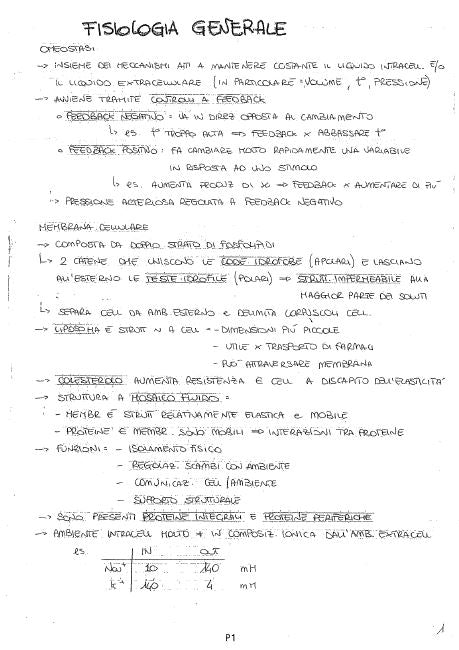 FISIOLOGIA GENERALE
OMEOSTASI
→ INSIEME DEI MECCANISMI ATTI A MANTENERE COSTANTE IL LIQUIDO INTRACELL. E/O
IL LIQUIDO EXTRACELLULARE (IN PARTICOLARE: VOLUME, t°, PRESSIONE)
→ AVVIENE TRAMITE CONTROLLI A FEEDBACK
o FEEDBACK NEGATIVO: VA IN DIREZ OPPOSTA AL CAMBIAMENTO
↳ es. t° TROPPO ALTA ⇒ FEEDBACK x ABBASSARE t°
o FEEDBACK POSITIVO: FA CAMBIARE MOLTO RAPIDAMENTE UNA VARIABILE
IN RISPOSTA AD UNO STIMOLO
↳ es. AUMENTA PRODUZ DI ⇒ FEEDBACK x AUMENTARE DI PIÙ
→ PRESSIONE ARTERIOSA REGOLATA A FEEDBACK NEGATIVO
MEMBRANA CELLULARE
→ COMPOSTA DA DOPPIO STRATO DI FOSFOLIPIDI
↳ 2 CATENE CHE UNISCONO LE CODE IDROFOBE (APOLARI) E LASCIANO
ALL'ESTERNO LE TESTE IDROFILE (POLARI) ⇒ STRUTT. IMPERMEABILE ALLA
MAGGIOR PARTE DEI SOLUTI
↳ SEPARA CELL DA AMB. ESTERNO E DELIMITA CORPUSCOLI CELL.
→ LIPOSOMA È STRUTT N A CELL = - DIMENSIONI PIÙ PICCOLE
- UTILE x TRASPORTO DI FARMACI
- PUÒ ATTRAVERSARE MEMBRANA
→ COLESTEROLO AUMENTA RESISTENZA E CELL A DISCAPITO DELL'ELASTICITÀ
→ STRUTTURA A MOSAICO FLUIDO =
- MEMBR È STRUTT RELATIVAMENTE ELASTICA e MOBILE
- PROTEINE E MEMBR. SONO MOBILI ⇒ INTERAZIONI TRA PROTEINE
→ FUNZIONI = - ISOLAMENTO FISICO
- REGOLAZ. SCAMBI CON AMBIENTE
- COMUNICAZ. CELL/AMBIENTE
- SUPPORTO STRUTTURALE
→ SONO PRESENTI PROTEINE INTEGRALI E PROTEINE PERIFERICHE
→ AMBIENTE INTRACELL MOLTO ≠ IN COMPOSIZ. IONICA DALL'AMB. EXTRACELL
es. IN OUT
Na+ 10 140 mM
K+ 140 4 mM
P1
1